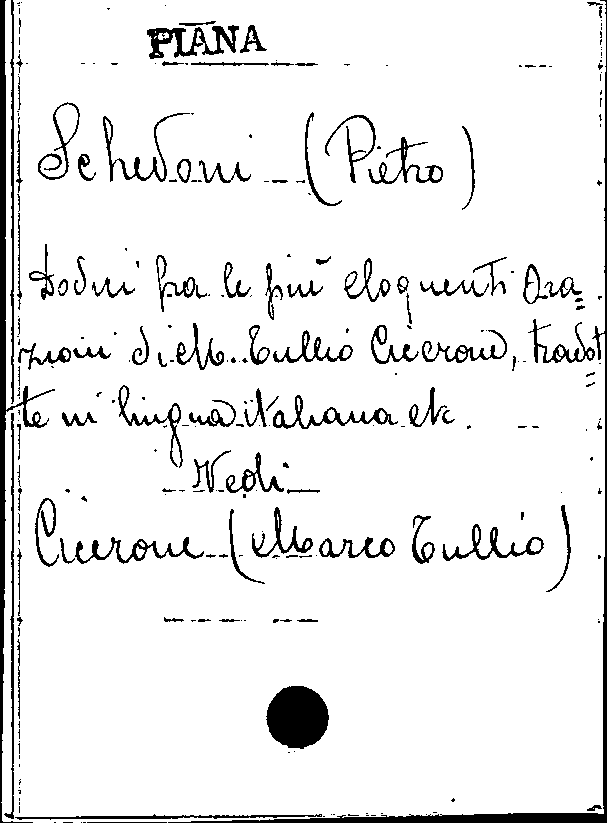 PIANA
Schedoni (Pietro)
Dodici fra le più eloquenti Ora=
zioni di M. Tullio Cicerone, tradot=
te in lingua italiana etc.
Vedi
Cicerone (Marco Tullio)